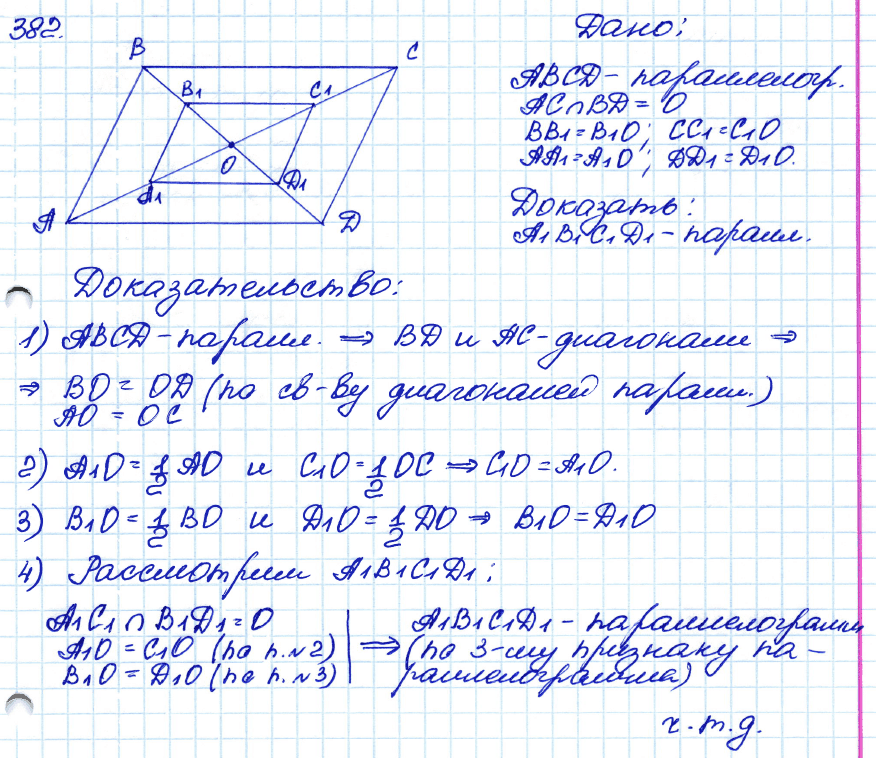 382.
B
C
B1
C1
O
A1
D1
A
D
Дано:
ABCD - параллелогр.
AC∩BD = O
BB1 = B1O; CC1 = C1O
AA1 = A1O; DD1 = D1O.
Доказать:
A1B1C1D1 - паралл.
Доказательство:
1) ABCD - паралл. ⇒ BD и AC - диагонали ⇒
⇒ BO = OD (по св-ву диагоналей паралл.)
AO = OC
2) A1O = 1/2 AO и C1O = 1/2 OC ⇒ C1O = A1O.
3) B1O = 1/2 BO и D1O = 1/2 DO ⇒ B1O = D1O
4) Рассмотрим A1B1C1D1:
A1C1 ∩ B1D1 = O
A1O = C1O (по п.№2)
B1O = D1O (по п.№3)
⇒ A1B1C1D1 - параллелограмм
(по 3-му признаку па-
раллелограмма)
ч.т.д.